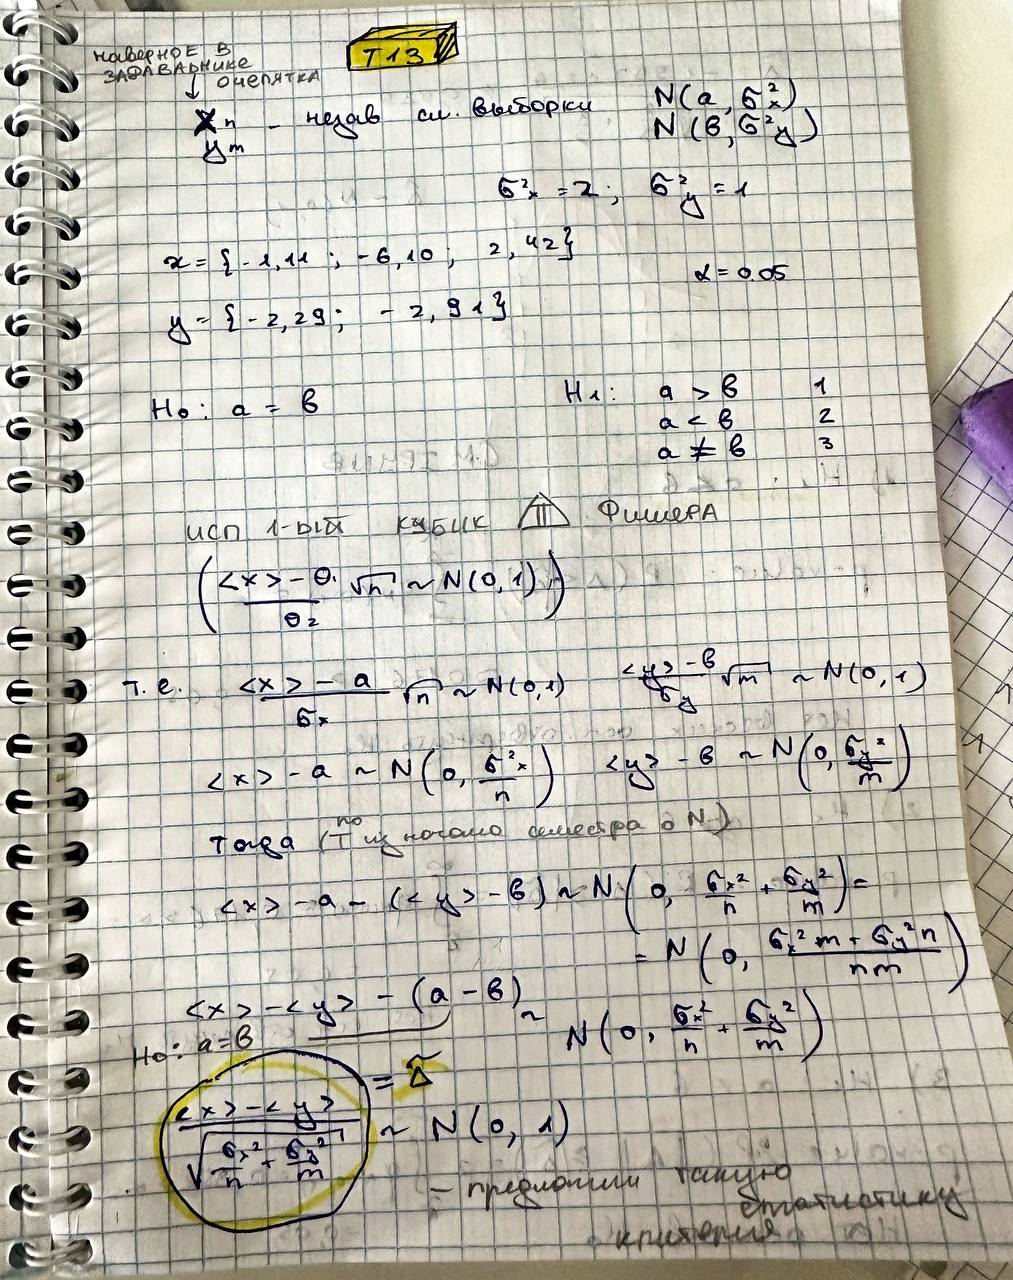 T13
наверное в
задавальнике
очепятка
Xn - незав сл. выборки N(a, σ²x)
ym N(b, σ²y)
σ²x = 2; σ²y = 1
x = {-1,11 ; -6,10 ; 2,42}
α = 0.05
y = {-2,29 ; -2,91}
H0: a = b H1: a > b 1
a < b 2
a ≠ b 3
исп 1-ый кубик П Фишера
(<x> - θ1 / θ2 √n ~ N(0,1))
т.е. <x> - a / σx √n ~ N(0,1) <y> - b / σy √m ~ N(0,1)
<x> - a ~ N(0, σ²x / n) <y> - b ~ N(0, σy² / m)
тогда (по T из начала семестра о N)
<x> - a - (<y> - b) ~ N(0, σx² / n + σy² / m) =
= N(0, σx² m + σy² n / nm)
<x> - <y> - (a - b) ~ N(0, σx² / n + σy² / m)
H0: a = b
<x> - <y> / √(σx² / n + σy² / m) = Δ̃ ~ N(0, 1)
- предложили такую
статистику
критерия